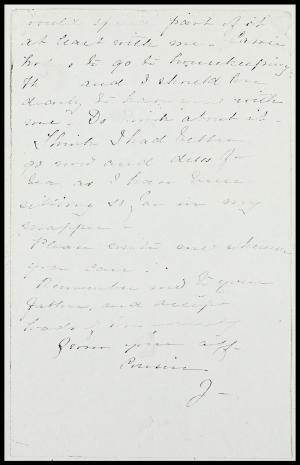 would spend part of it
at least with me. Cousin
has to go to housekeeping
and I should love
dearly to have you with
me. Do think about it.
I think I had better
go now and dress for
tea, as I have been
sitting so far in my
wrapper.
Please write me whenever
you can.
Remember me to your
father, and accept
loads of
from your aff.
Cousin
J-